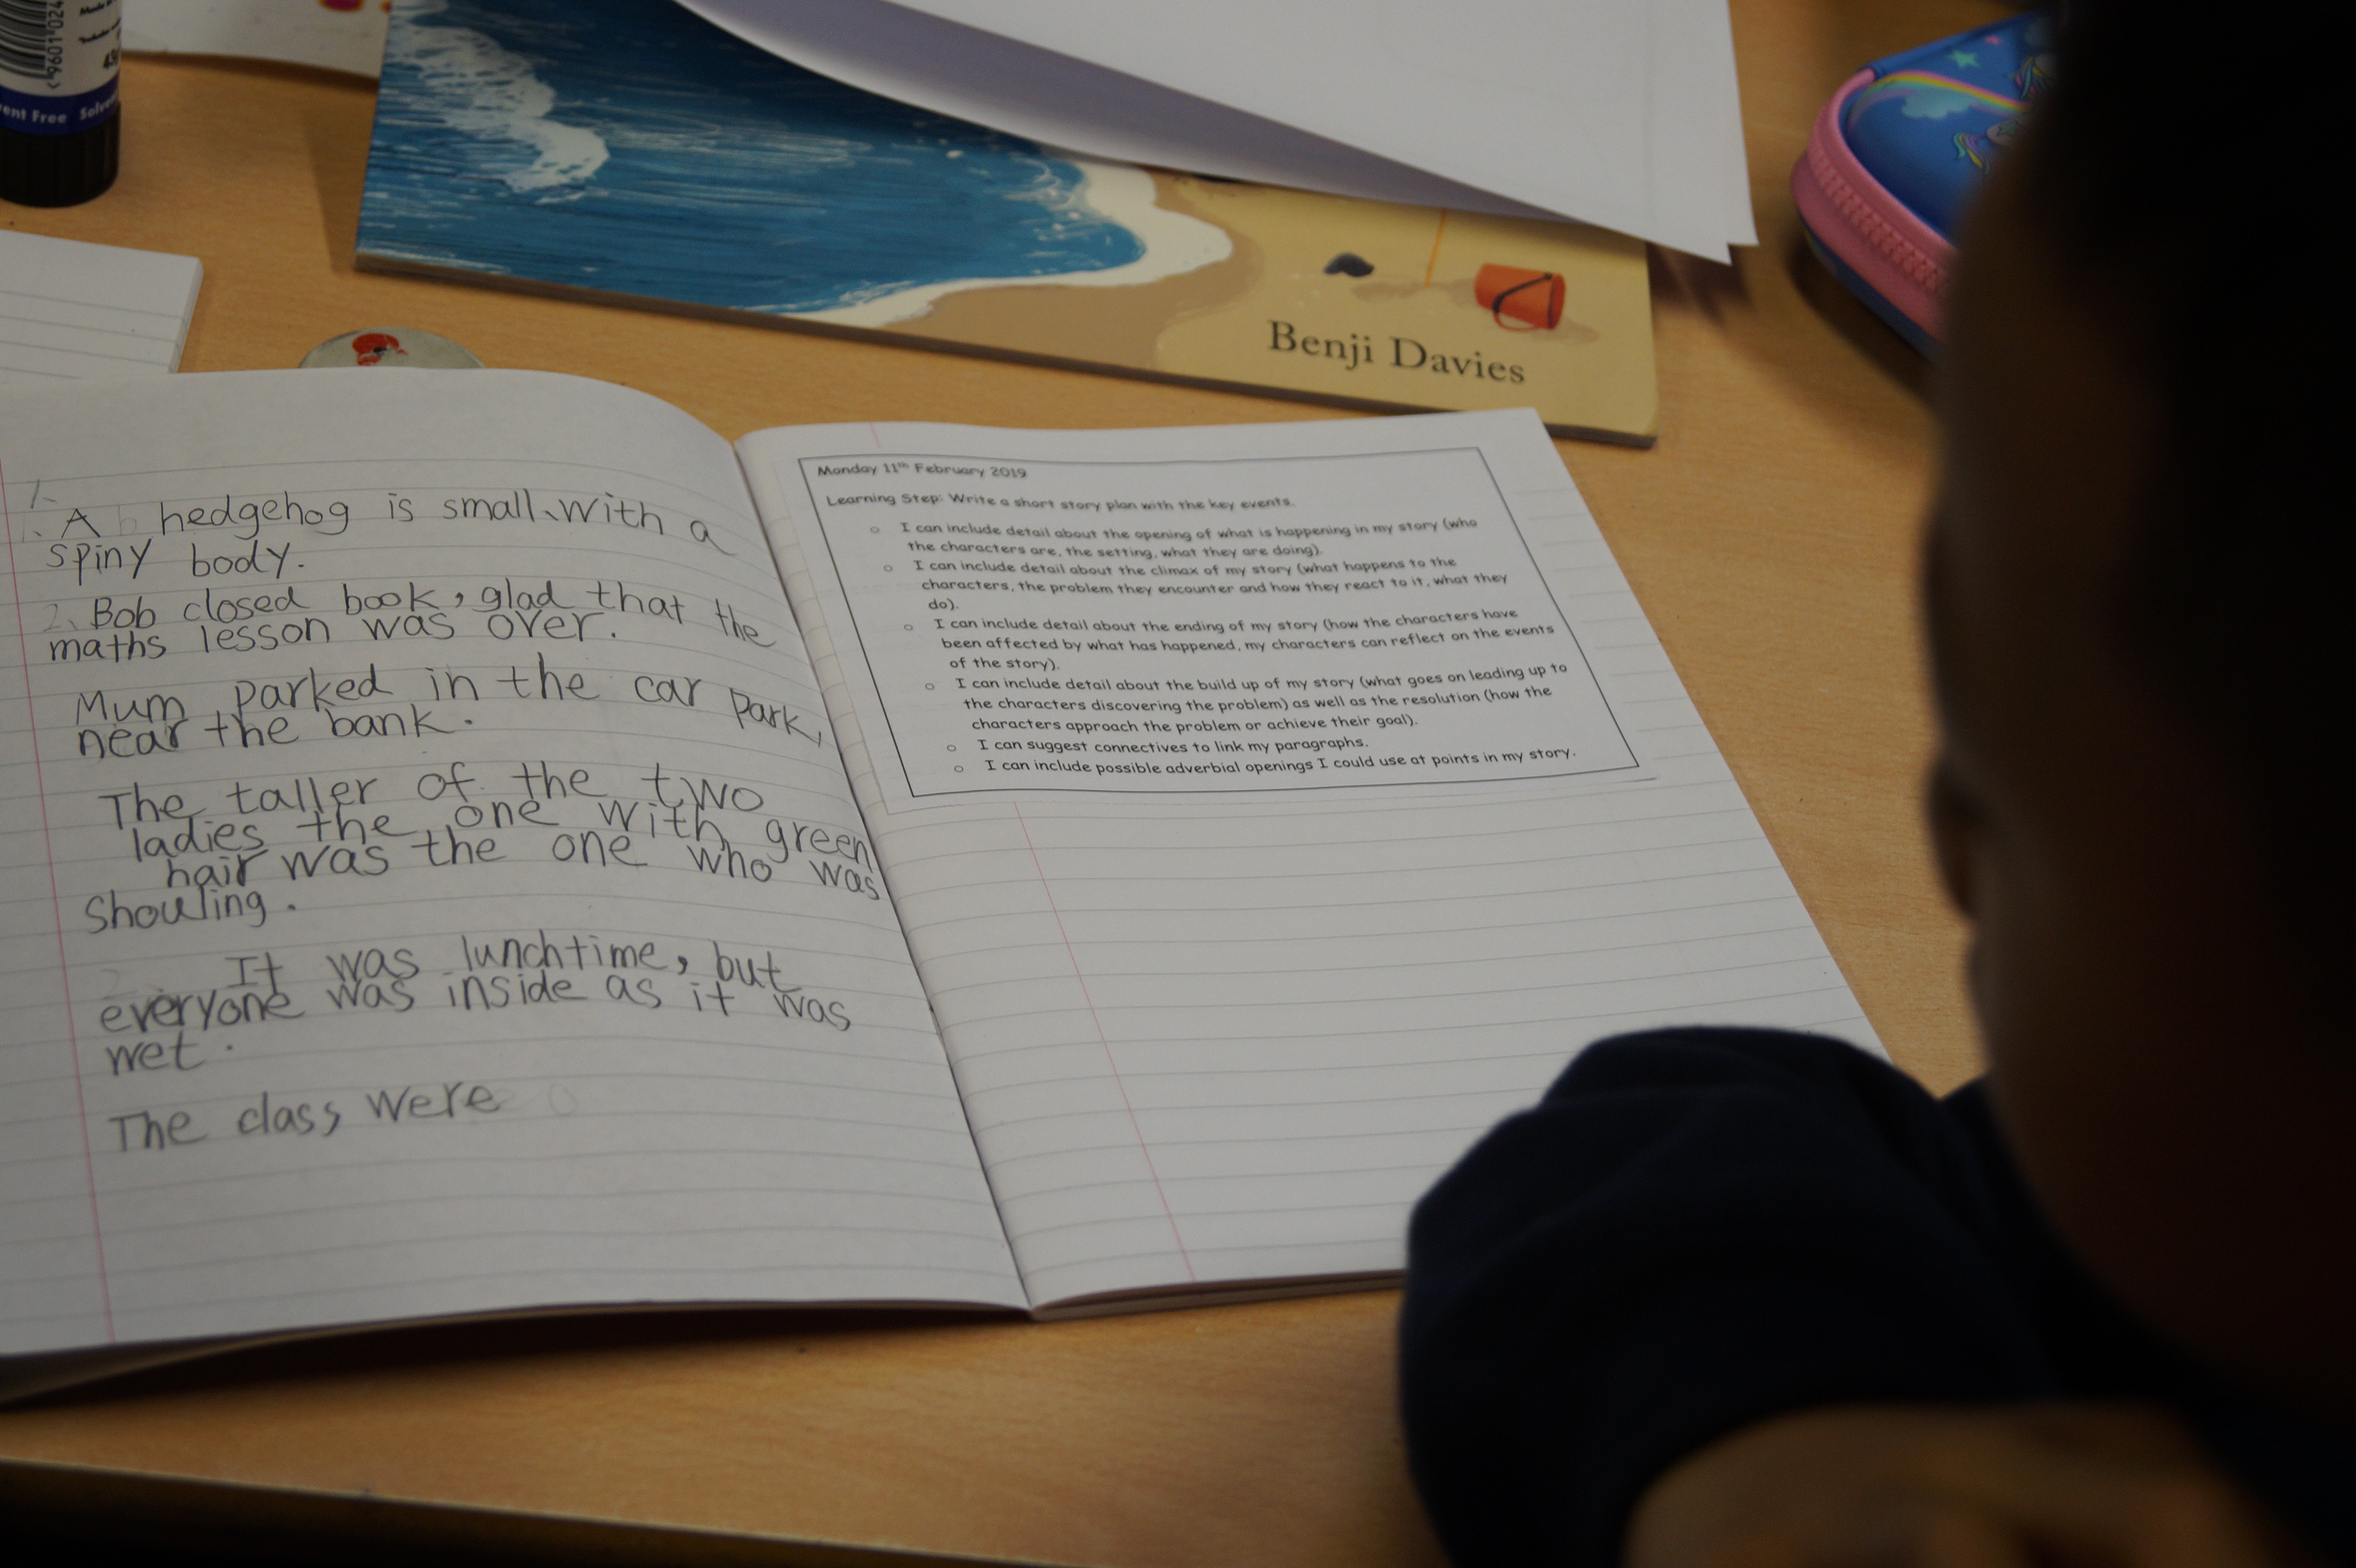 9601024
Solvent Free
Benji Davies
1.
A hedgehog is small, with a
spiny body.
2. Bob closed book, glad that the
maths lesson was over.
Mum parked in the car park,
near the bank.
The taller of the two
ladies the one with green
hair was the one who was
Shouting.
It was lunchtime, but
everyone was inside as it was
wet.
The class, were
Monday 11th February 2019
Learning Step: Write a short story plan with the key events.
o I can include detail about the opening of what is happening in my story (who
the characters are, the setting, what they are doing).
o I can include detail about the climax of my story (what happens to the
characters, the problem they encounter and how they react to it, what they
do).
o I can include detail about the ending of my story (how the characters have
been affected by what has happened, my characters can reflect on the events
of the story).
o I can include detail about the build up of my story (what goes on leading up to
the characters discovering the problem) as well as the resolution (how the
characters approach the problem or achieve their goal).
o I can suggest connectives to link my paragraphs.
o I can include possible adverbial openings I could use at points in my story.